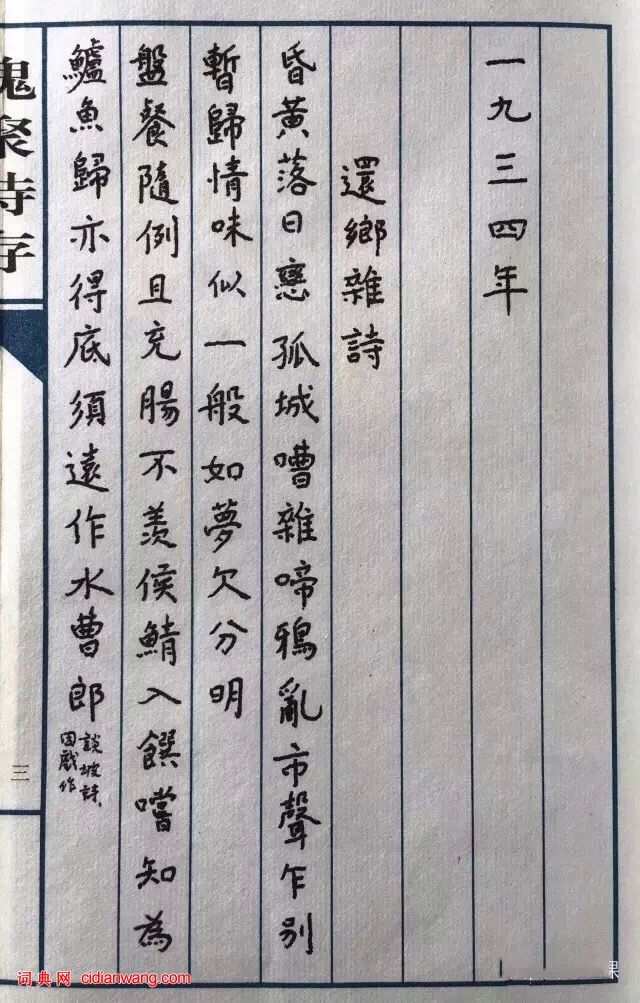 一九三四年
還鄉雜詩
昏黃落日戀孤城嘈雜啼鴉亂市聲乍別
暫歸情味似一般如夢欠分明
盤餐隨例且充腸不羨侯鯖入饌嚐知為
鱸魚歸亦得底須遠作水曹郎
談坡詩、
因戲作
槐聚詩存
三
詞典网 cidianwang.com
课